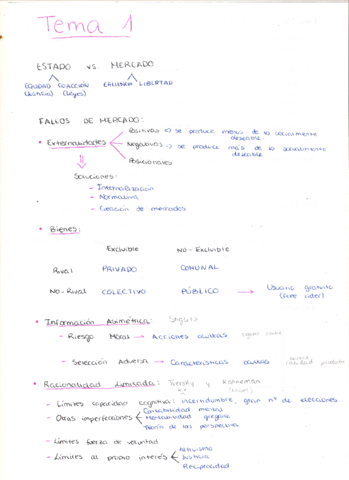 Tema 1
ESTADO vs. MERCADO
EQUIDAD COACCIÓN LIBERTAD
(Justicia) (leyes)
FALLOS DE MERCADO:
Positivas => se produce menos de lo socialmente
deseable.
• Externalidades Negativas => se produce más de lo socialmente
deseable
Posicionales
Soluciones:
- Internalización
- Normativa
- Creación de mercados
• Bienes:
Excluible NO-Excluible
Rival PRIVADO COMUNAL
NO-Rival COLECTIVO PÚBLICO → Usuario gratuito
(free rider)
• Información Asimétrica: Stiglitz
- Riesgo Moral → Acciones ocultas
- Selección Adversa → Características ocultas
calidad producto
• Racionalidad Limitada: Tversky y Kahneman
- Límites capacidad cognitiva: incertidumbre, gran nº de elecciones
Contabilidad mental
- Otras imperfecciones Mentalidad gregaria
Teoría de las perspectivas
- Límites fuerza de voluntad
Altruismo
- Límites al propio interés Justicia
Reciprocidad